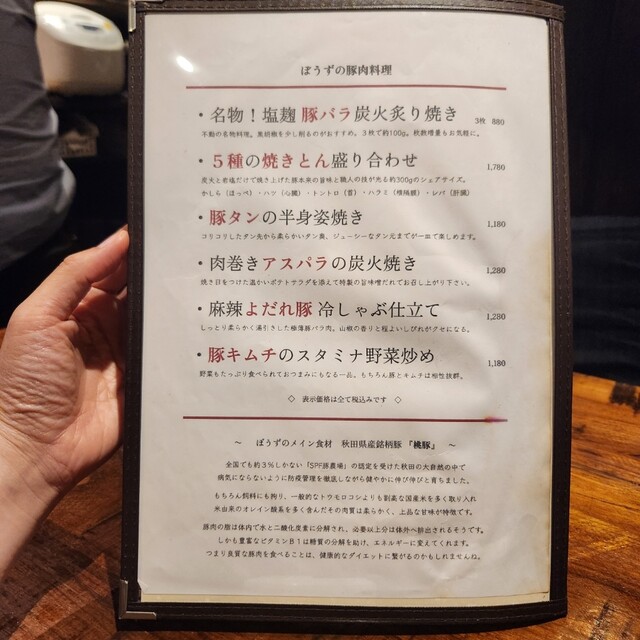 ぼうずの豚肉料理
・名物！塩麹 豚バラ炭火炙り焼き 3枚 880
不動の名物料理。黒胡椒を少し削るのがおすすめ。3枚で約100g。枚数増量もお気軽に。
・5種の焼きとん盛り合わせ 1,780
炭火と岩塩だけで焼き上げた豚本来の旨味と職人の技が光る約300gのシェアサイズ。
かしら（ほっぺ）・ハツ（心臓）・トントロ（首）・ハラミ（横隔膜）・レバ（肝臓）
・豚タンの半身姿焼き 1,180
コリコリしたタン先から柔らかいタン奥、ジューシーなタン元までが一皿で楽しめます。
・肉巻きアスパラの炭火焼き 1,280
焼き目をつけた温かいポテトサラダを添えて特製の旨味噌だれでお召し上がり下さい。
・麻辣よだれ豚 冷しゃぶ仕立て 1,280
しっとり柔らかく湯引きした極薄豚バラ肉。山椒の香りと程よいしびれがクセになる。
・豚キムチのスタミナ野菜炒め 1,180
野菜もたっぷり食べられておつまみにもなる一品。もちろん豚とキムチは相性抜群。
◇ 表示価格は全て税込みです ◇
～ ぼうずのメイン食材 秋田県産銘柄豚 「桃豚」 ～
全国でも約3％しかない「SPF豚農場」の認定を受けた秋田の大自然の中で
病気にならないように防疫管理を徹底しながら健やかに伸び伸びと育ちました。
もちろん飼料にも拘り、一般的なトウモロコシよりも割高な国産米を多く取り入れ
米由来のオレイン酸系を多く含んだその肉質は柔らかく、上品な甘味が特徴です。
豚肉の脂は体内で水と二酸化炭素に分解され、必要以上分は体外へ排出されるそうです。
しかも豊富なビタミンB1は糖質の分解を助け、エネルギーに変えてくれます。
つまり良質な豚肉を食べることは、健康的なダイエットに繋がるのかもしれませんね。